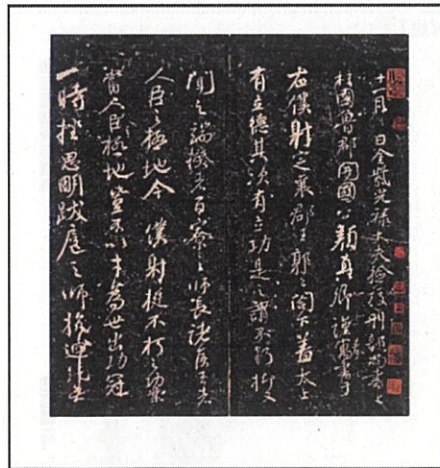 十一月日金紫光祿大夫檢校刑部尚書上
柱國魯郡開國公顏真卿謹奉書于
右僕射定襄郡王郭公閤下蓋太上
有立德其次有立功是之謂不朽抑又
聞之端揆者百寮之師長諸侯王者
人臣之極地今僕射挺不朽之功業
當人臣極地豈不以才為世出功冠
一時挫思明跋扈之師抗迴紇無